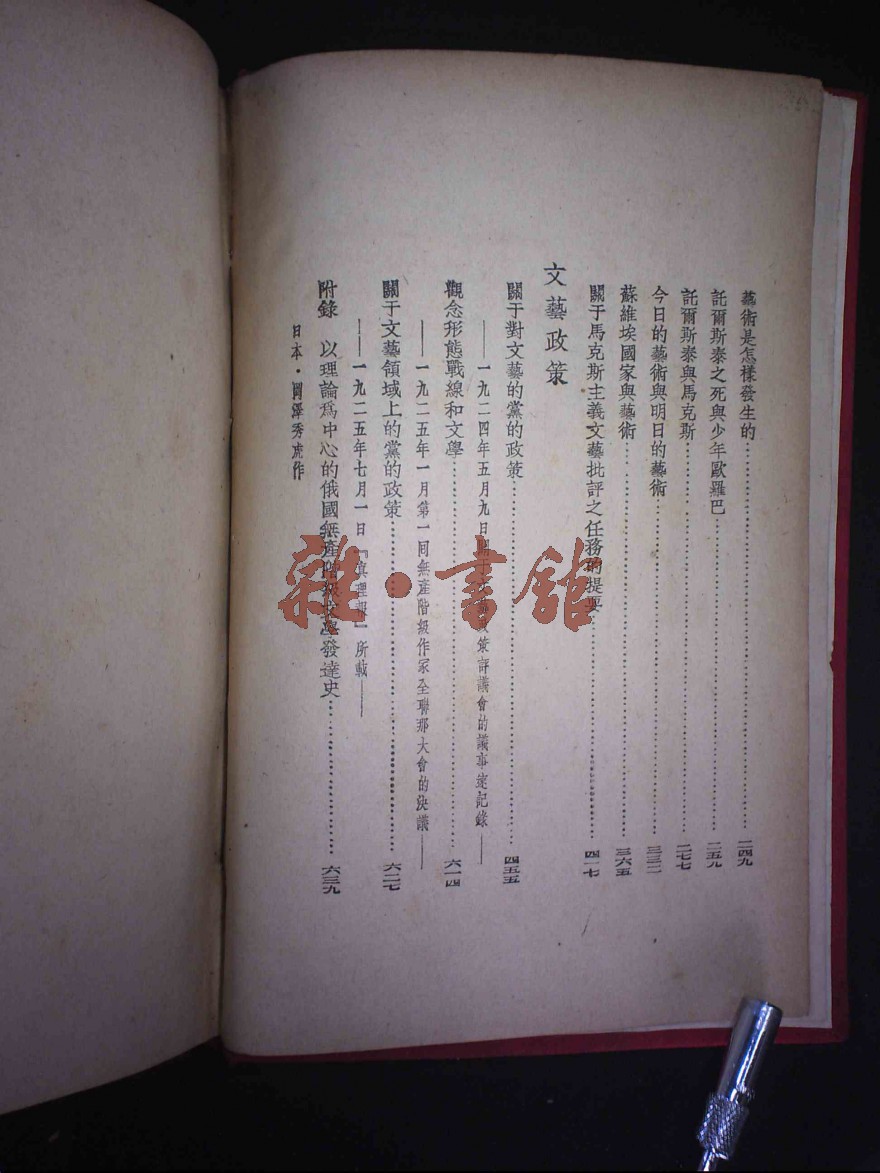 藝術是怎樣發生的……二四九
託爾斯泰之死與少年歐羅巴……二五九
託爾斯泰與馬克斯……二七七
今日的藝術與明日的藝術……三三二
蘇維埃國家與藝術……三六五
關于馬克斯主義文藝批評之任務的提要……四一七
文藝政策
關于對文藝的黨的政策……四五五
——一九二四年五月九日關于文藝政策評議會的議事速記錄——
觀念形態戰線和文學……六一四
——一九二五年一月第一回無產階級作家全聯邦大會的決議——
關于文藝領域上的黨的政策……六二七
——一九二五年七月一日『真理報』所載——
附錄 以理論爲中心的俄國無產階級文學發達史……六三九
日本・岡澤秀虎作
雜・書館